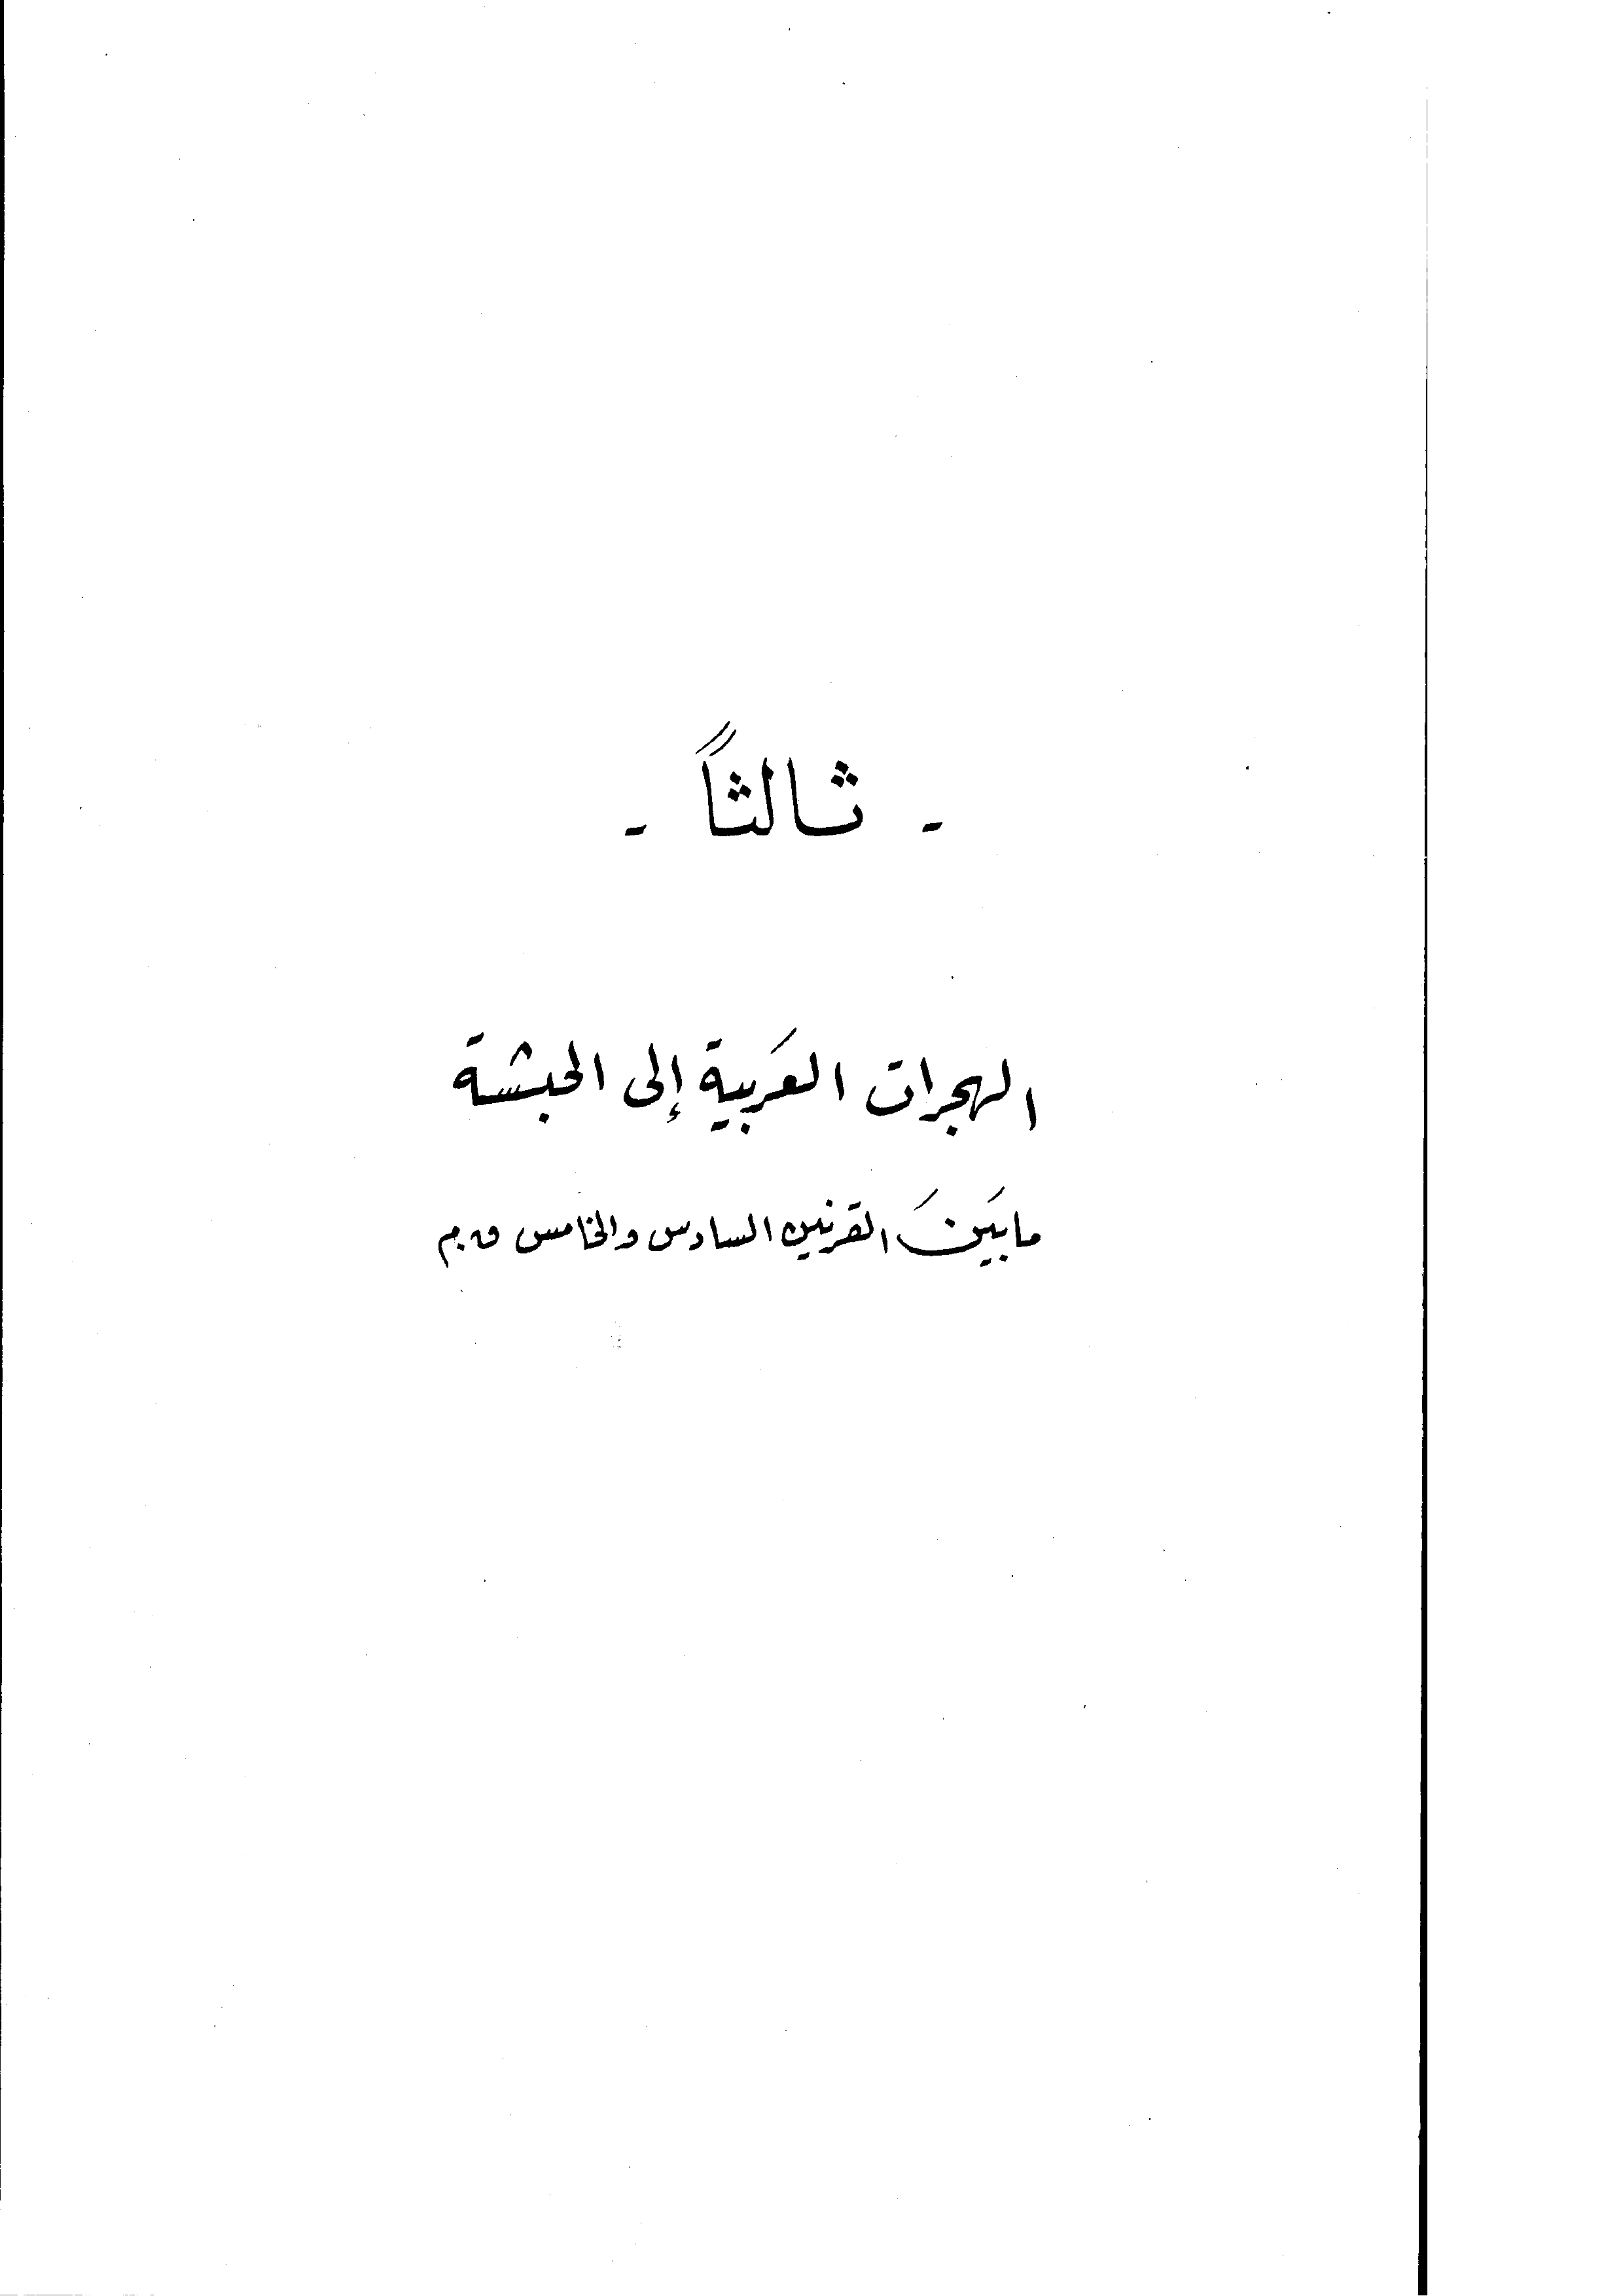 - ثالثاً -
الهجرات العَربية إلى الحبشة
ما بَينَ القرنين السادس والخامس ق.م